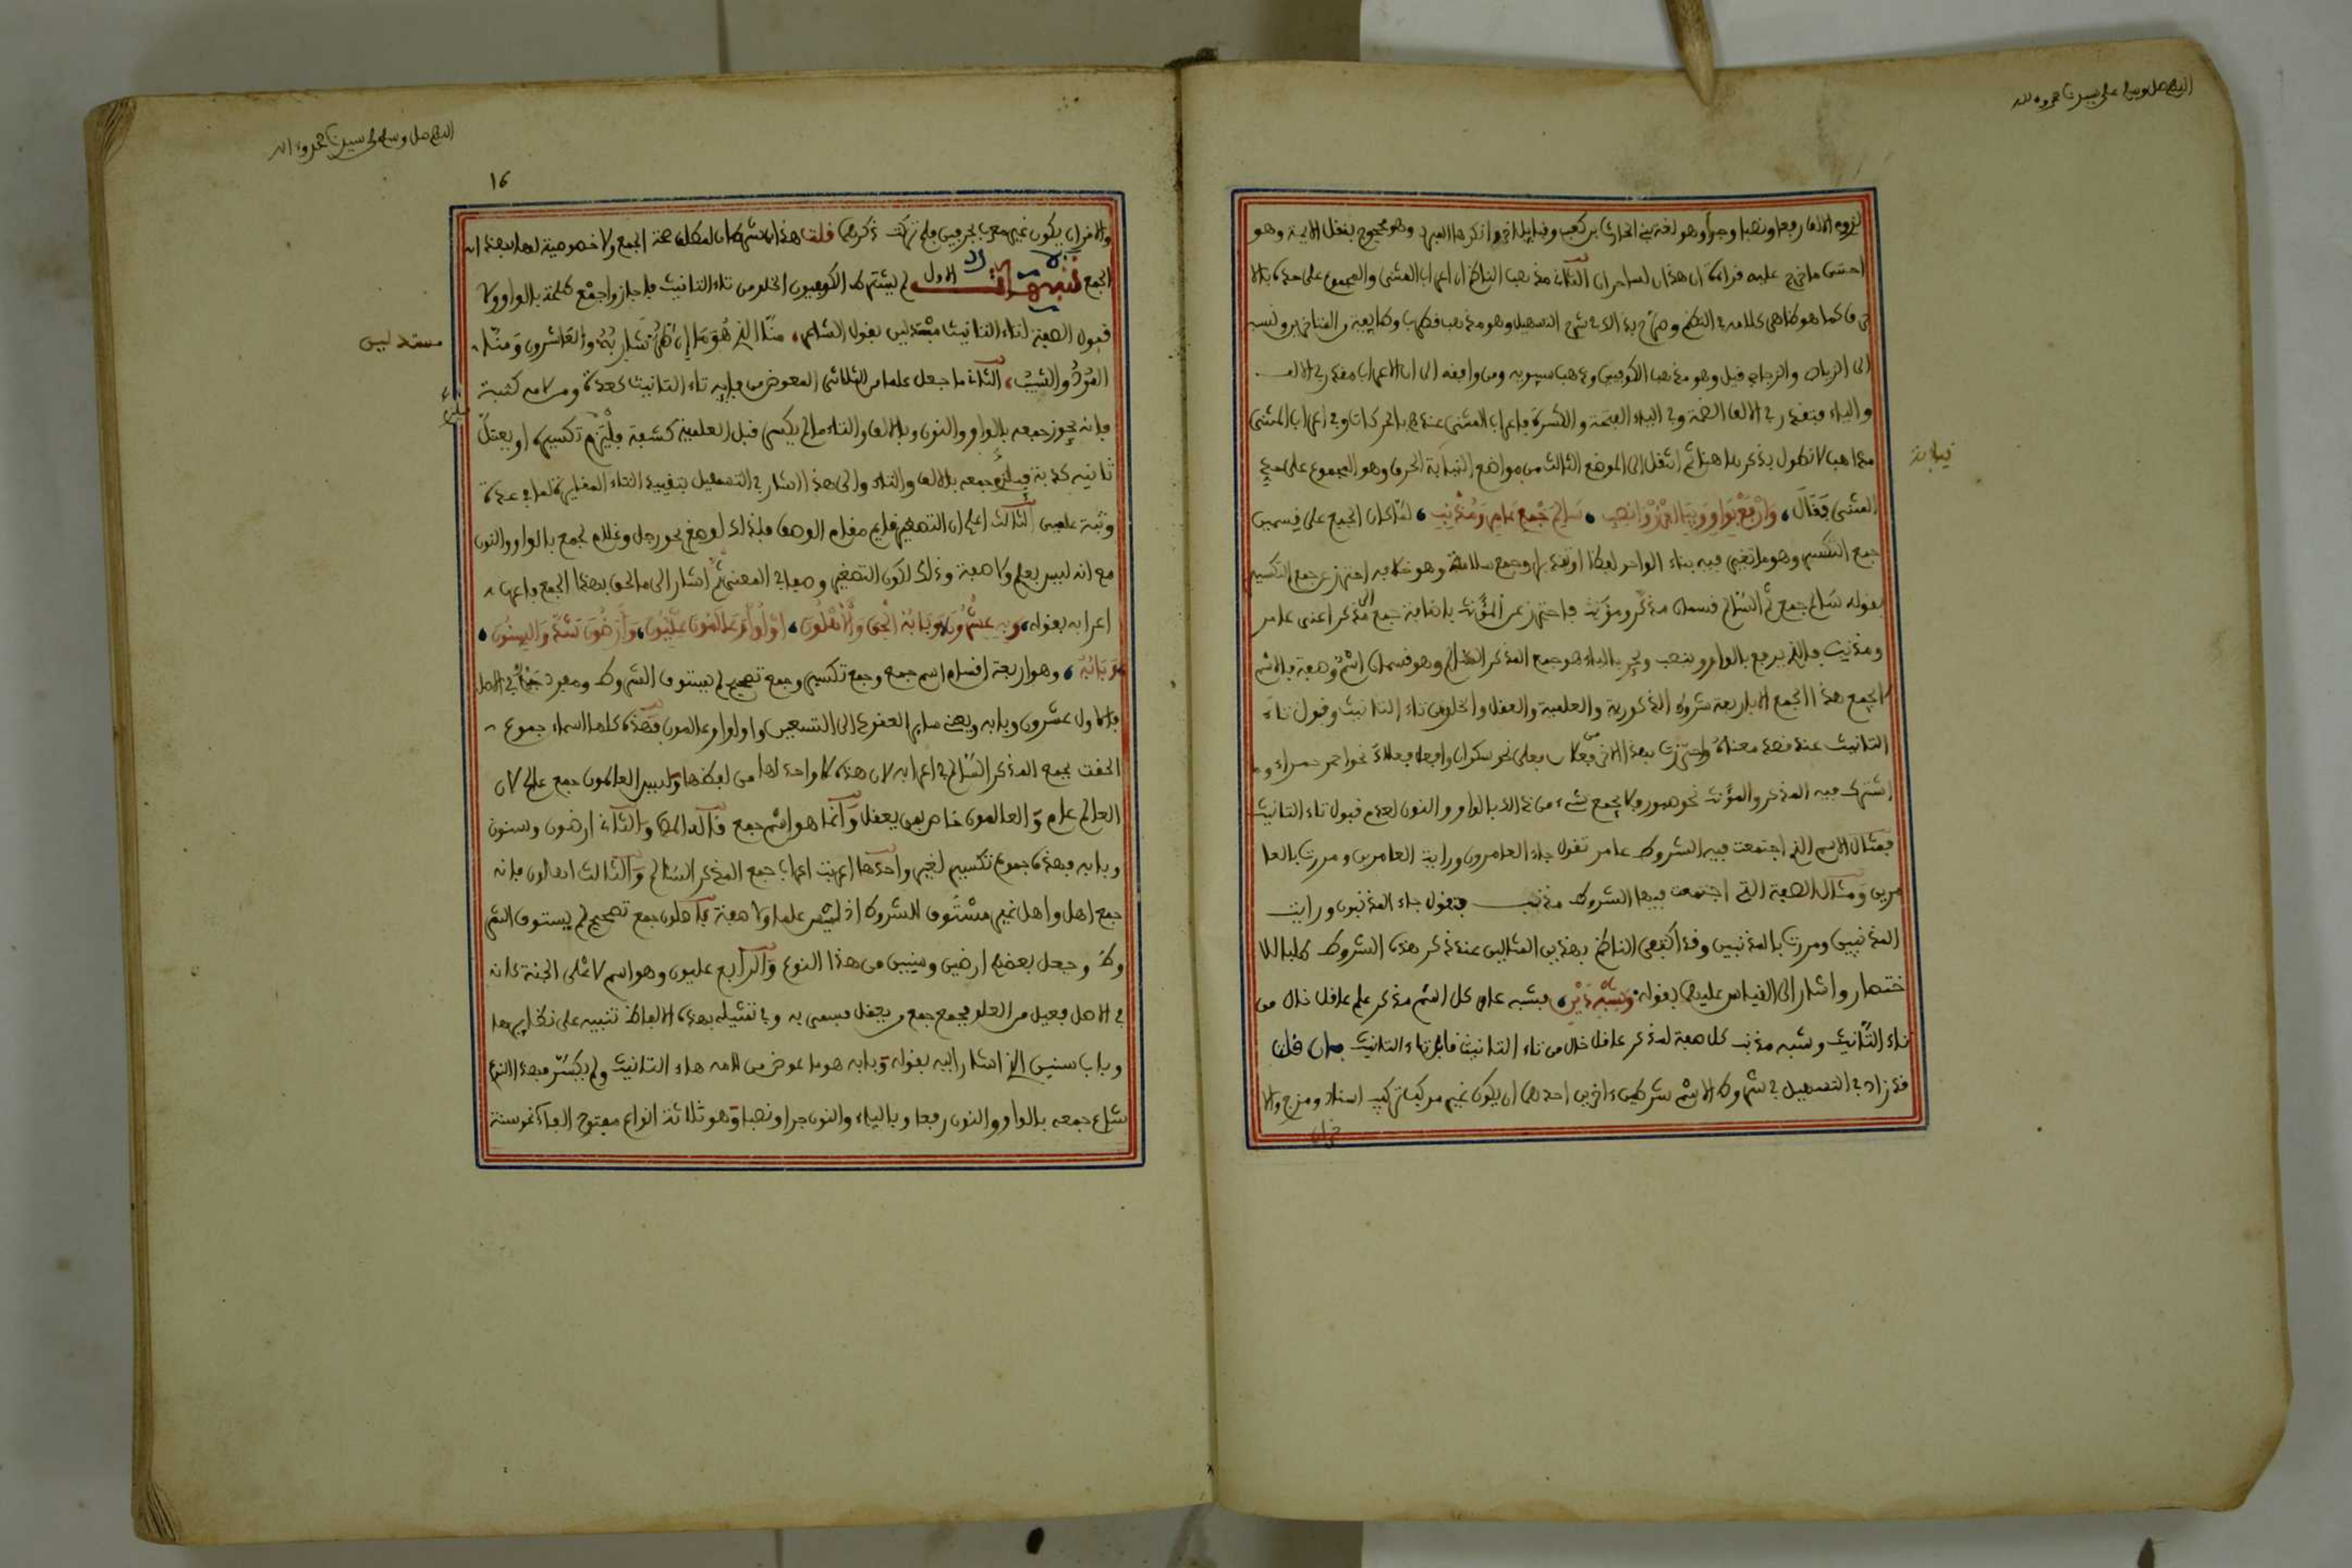 اللهم صل وسلم على سيدنا محمد وءاله
لزوم الالف رفعا ونصبا وجرا وهو لغة بني الحارث بن كعب وقبايل اخر وانكرها المبرد وهو محجوج بنقل الايمة وهو
احسن ما خرج عليه قراءة ان هذان لساحران الثاني مذهب الناظم ان اعراب المثنى والمجموع على حده بالا
حرف كما هو ظاهر كلامه في النظم وصرح بذلك في شرح التسهيل وهو مذهب قطرب وطايفة من المتاخرين ونسب
الى الزيادي والزجاجي قيل وهو مذهب الكوفيين وذهب سيبويه ومن وافقه الى ان الاعراب مقدر في الالف
والياء فتقدر في الالف الضمة وفي الياء الفتحة والكسرة فاعراب المثنى عندهم بالحركات وفي اعراب المثنى
مذاهب لا نطول بذكرها هنا ثم انتقل الى الموضع الثالث من مواضع النيابة الحرف وهو المجموع على حد
نيابة
المثنى فقال، وارفع بواو وبيا اجرر وانصب، سالم جمع عامر ومذنب، لما كان الجمع على قسمين
جمع التكسير وهو ما تغير فيه بناء الواحد لفظا او تقديرا وجمع سلامة وهو خلافه احترز عن جمع التكسير
بقوله سالم جمع ثم السالم قسمان مذكر ومؤنث فاحترز عن المؤنث باضافة جمع الى مذكر اعني عامر
ومذنب فالذي يرفع بالواو وينصب ويجر بالياء هو جمع المذكر السالم وهو قسمان اسم وصفة فالاسم
لا يجمع هذا الجمع الا باربعة شروط الذكورية والعلمية والعقل والخلو من تاء التانيث وقبول تاء
التانيث عند قصد معناه واحترزت بهذا الاخر من فعلان فعلى نحو سكران وافعل فعلاء نحو احمر حمراء وما
اشترك فيه المذكر والمؤنث نحو صبور فلا يجمع شيء من ذالك بالواو والنون لعدم قبول تاء التانيث
فمثال الاسم الذي اجتمعت فيه الشروط عامر تقول جاء العامرون ورايت العامرين ومررت بالعا
مرين ومثال الصفة التي اجتمعت فيها الشروط مذنب فتقول جاء المذنبون ورايت
المذنبين ومررت بالمذنبين وقد اكتفى الناظم بهذين المثالين عند ذكر هذه الشروط طلبا للا
ختصار واشار الى القياس عليهما بقوله، وشبه ذين، فشبه عامر كل اسم مذكر علم عاقل خال من
تاء التانيث وشبه مذنب كل صفة لمذكر عاقل خال من تاء التانيث قابل تاء التانيث فان قلت
قد زاد في التسهيل في شروط الاسم شرطين ءاخرين احدهما ان يكون غير مركب تركيب اسناد ومزج والا
خران
اللهم صل وسلم على سيدنا محمد وءاله
16
والاخر ان يكون غير معرب بحرفين فلم تركت ذكرهما قلت هذان شرطان لمطلق صحة الجمع ولا خصوصية لهما بهذا
الجمع تنبيهات الاول لم يشترط الكوفيون الخلو من تاء التانيث فاجازوا جمع طلحة بالواو ولا
قبول الصفة لتاء التانيث مستدلين بقول الشاعر، منا الذي هو ما ان طر شاربه والعانسون ومنا
مستدلين
المرد والشيب، الثاني ما جعل علما من الثلاثي المعوض من فايه تاء التانيث كعدة ومن لامه كثبة
فانه يجوز جمعه بالواو والنون وبالالف والتاء ما لم يكسر قبل العلمية كشفة فيلتزم تكسيره او يعتل
ثانيه كدية فيلزم جمعه بالالف والتاء والى هذا اشار في التسهيل بتقييد التاء المغايرة لما في عدة
وثبة علمين الثالث اعلم ان التصغير قايم مقام الوصف فلذلك لو صغر نحو رجل وغلام لجمع بالواو والنون
مع انه ليس بعلم ولا صفة وذلك لكون التصغير وصفا في المعنى ثم اشار الى ما الحق بهذا الجمع فاعرب
اعرابه بقوله، وبه عشرونا، وبابه الحق والاهلون، اولوا وعالمون عليون، وارضون شذ والسنون،
وبابه، وهو اربعة اقسام اسم جمع وجمع تكسير وجمع تصحيح لم يستوف الشروط ومفرد جمع في الاصل
فالاول عشرون وبابه ويعني سايرا لعقود الى التسعين واولوا وعالمون فهذه كلها اسماء جموع
الحقت بجمع المذكر السالم في اعرابه لان هذه لا واحد لها من لفظها وليس العالمون جمع عالم لان
العالم عام والعالمون خاص بمن يعقل وانما هو اسم جمع قاله والثاني ارضون وسنون
وبابه فهذه جموع تكسير لغير واحدها اعربت اعراب جمع المذكر السالم والثالث اهلون فانه
جمع اهل واهل غير مستوف للشروط اذ ليس علما ولا صفة فاهلون جمع تصحيح لم يستوف الشر
وط وجعل بعضهم ارضين وسنين من هذا النوع والرابع عليون وهو اسم لاعلى الجنة كانه
في الاصل فعيل من العلو فجمع جمع من يعقل فسمي به وفي تمثيله بهذه الالفاظ تنبيه على نظايرها
وباب سنين الذي اشار اليه بقوله وبابه هو ما عوض من لامه هاء التانيث ولم يكسر فهذا النوع
شاع جمعه بالواو والنون رفعا وبالياء والنون جرا ونصبا وهو ثلاثة انواع مفتوح الفاء نحو سنة